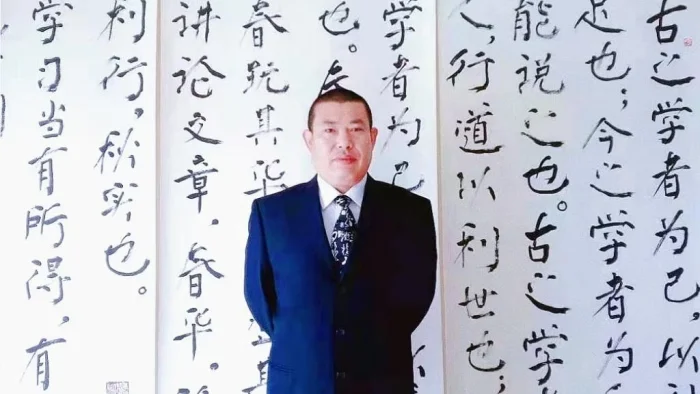 古之学者为己，以
足也；今之学者为
能说之也。古之学
人，行道以利世也；
学者为己，
也。
春玩其华
讲论文章，春华
利行，秋实也。
学习当有所得，有